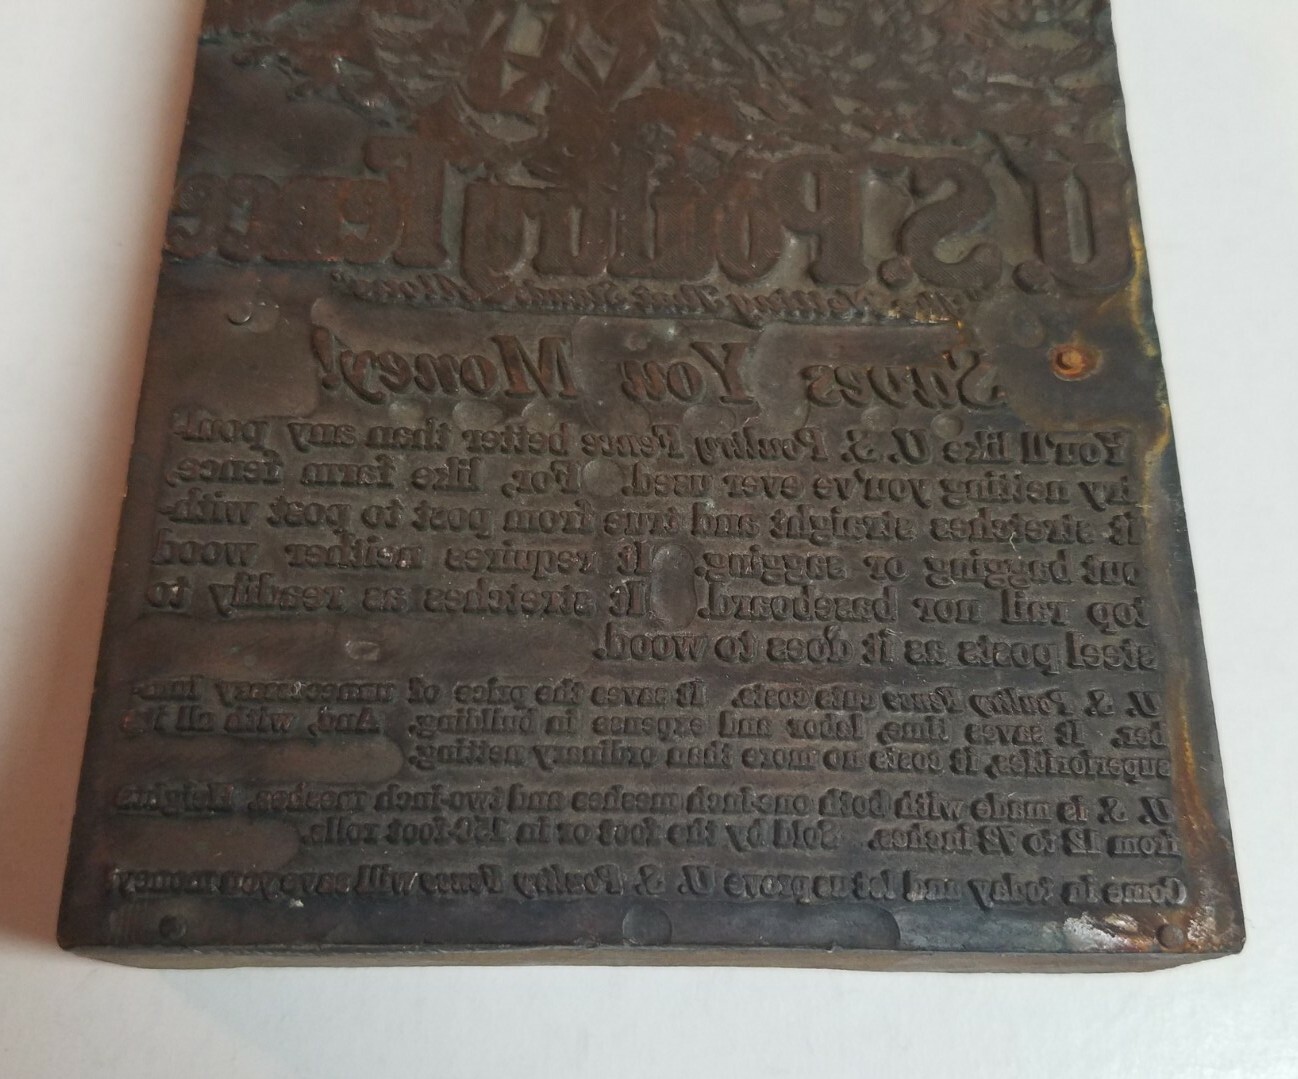 U.S. Poultry Fence
"The Netting That Stands Alone"
Saves You Money!
You'll like U. S. Poultry Fence better than any poul-
try netting you've ever used. For, like farm fence,
it stretches straight and true from post to post with-
out bagging or sagging. It requires neither wood
top rail nor baseboard. It stretches as readily to
steel posts as it does to wood.
U. S. Poultry Fence cuts costs. It saves the price of unnecessary lum-
ber. It saves time, labor and expense in building. And, with all its
superiorities, it costs no more than ordinary netting.
U. S. is made with both one-inch meshes and two-inch meshes. Heights
from 12 to 72 inches. Sold by the foot or in 150-foot rolls.
Come in today and let us prove U. S. Poultry Fence will save you money.